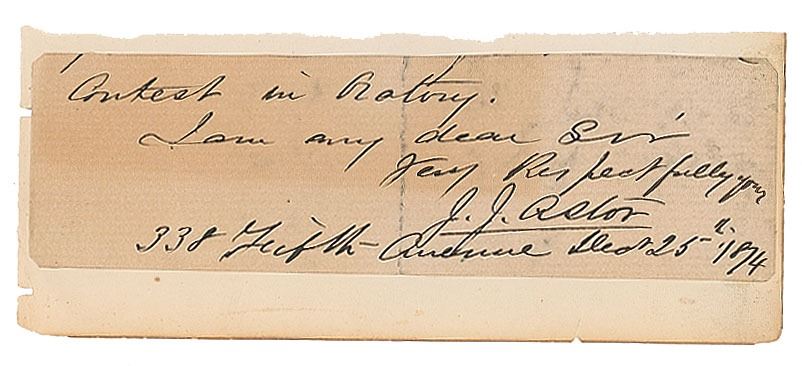 Contest in Oratory.
I am my dear Sir
Very Respectfully yours
J. J. Astor
338 Fifth Avenue 25th 1874